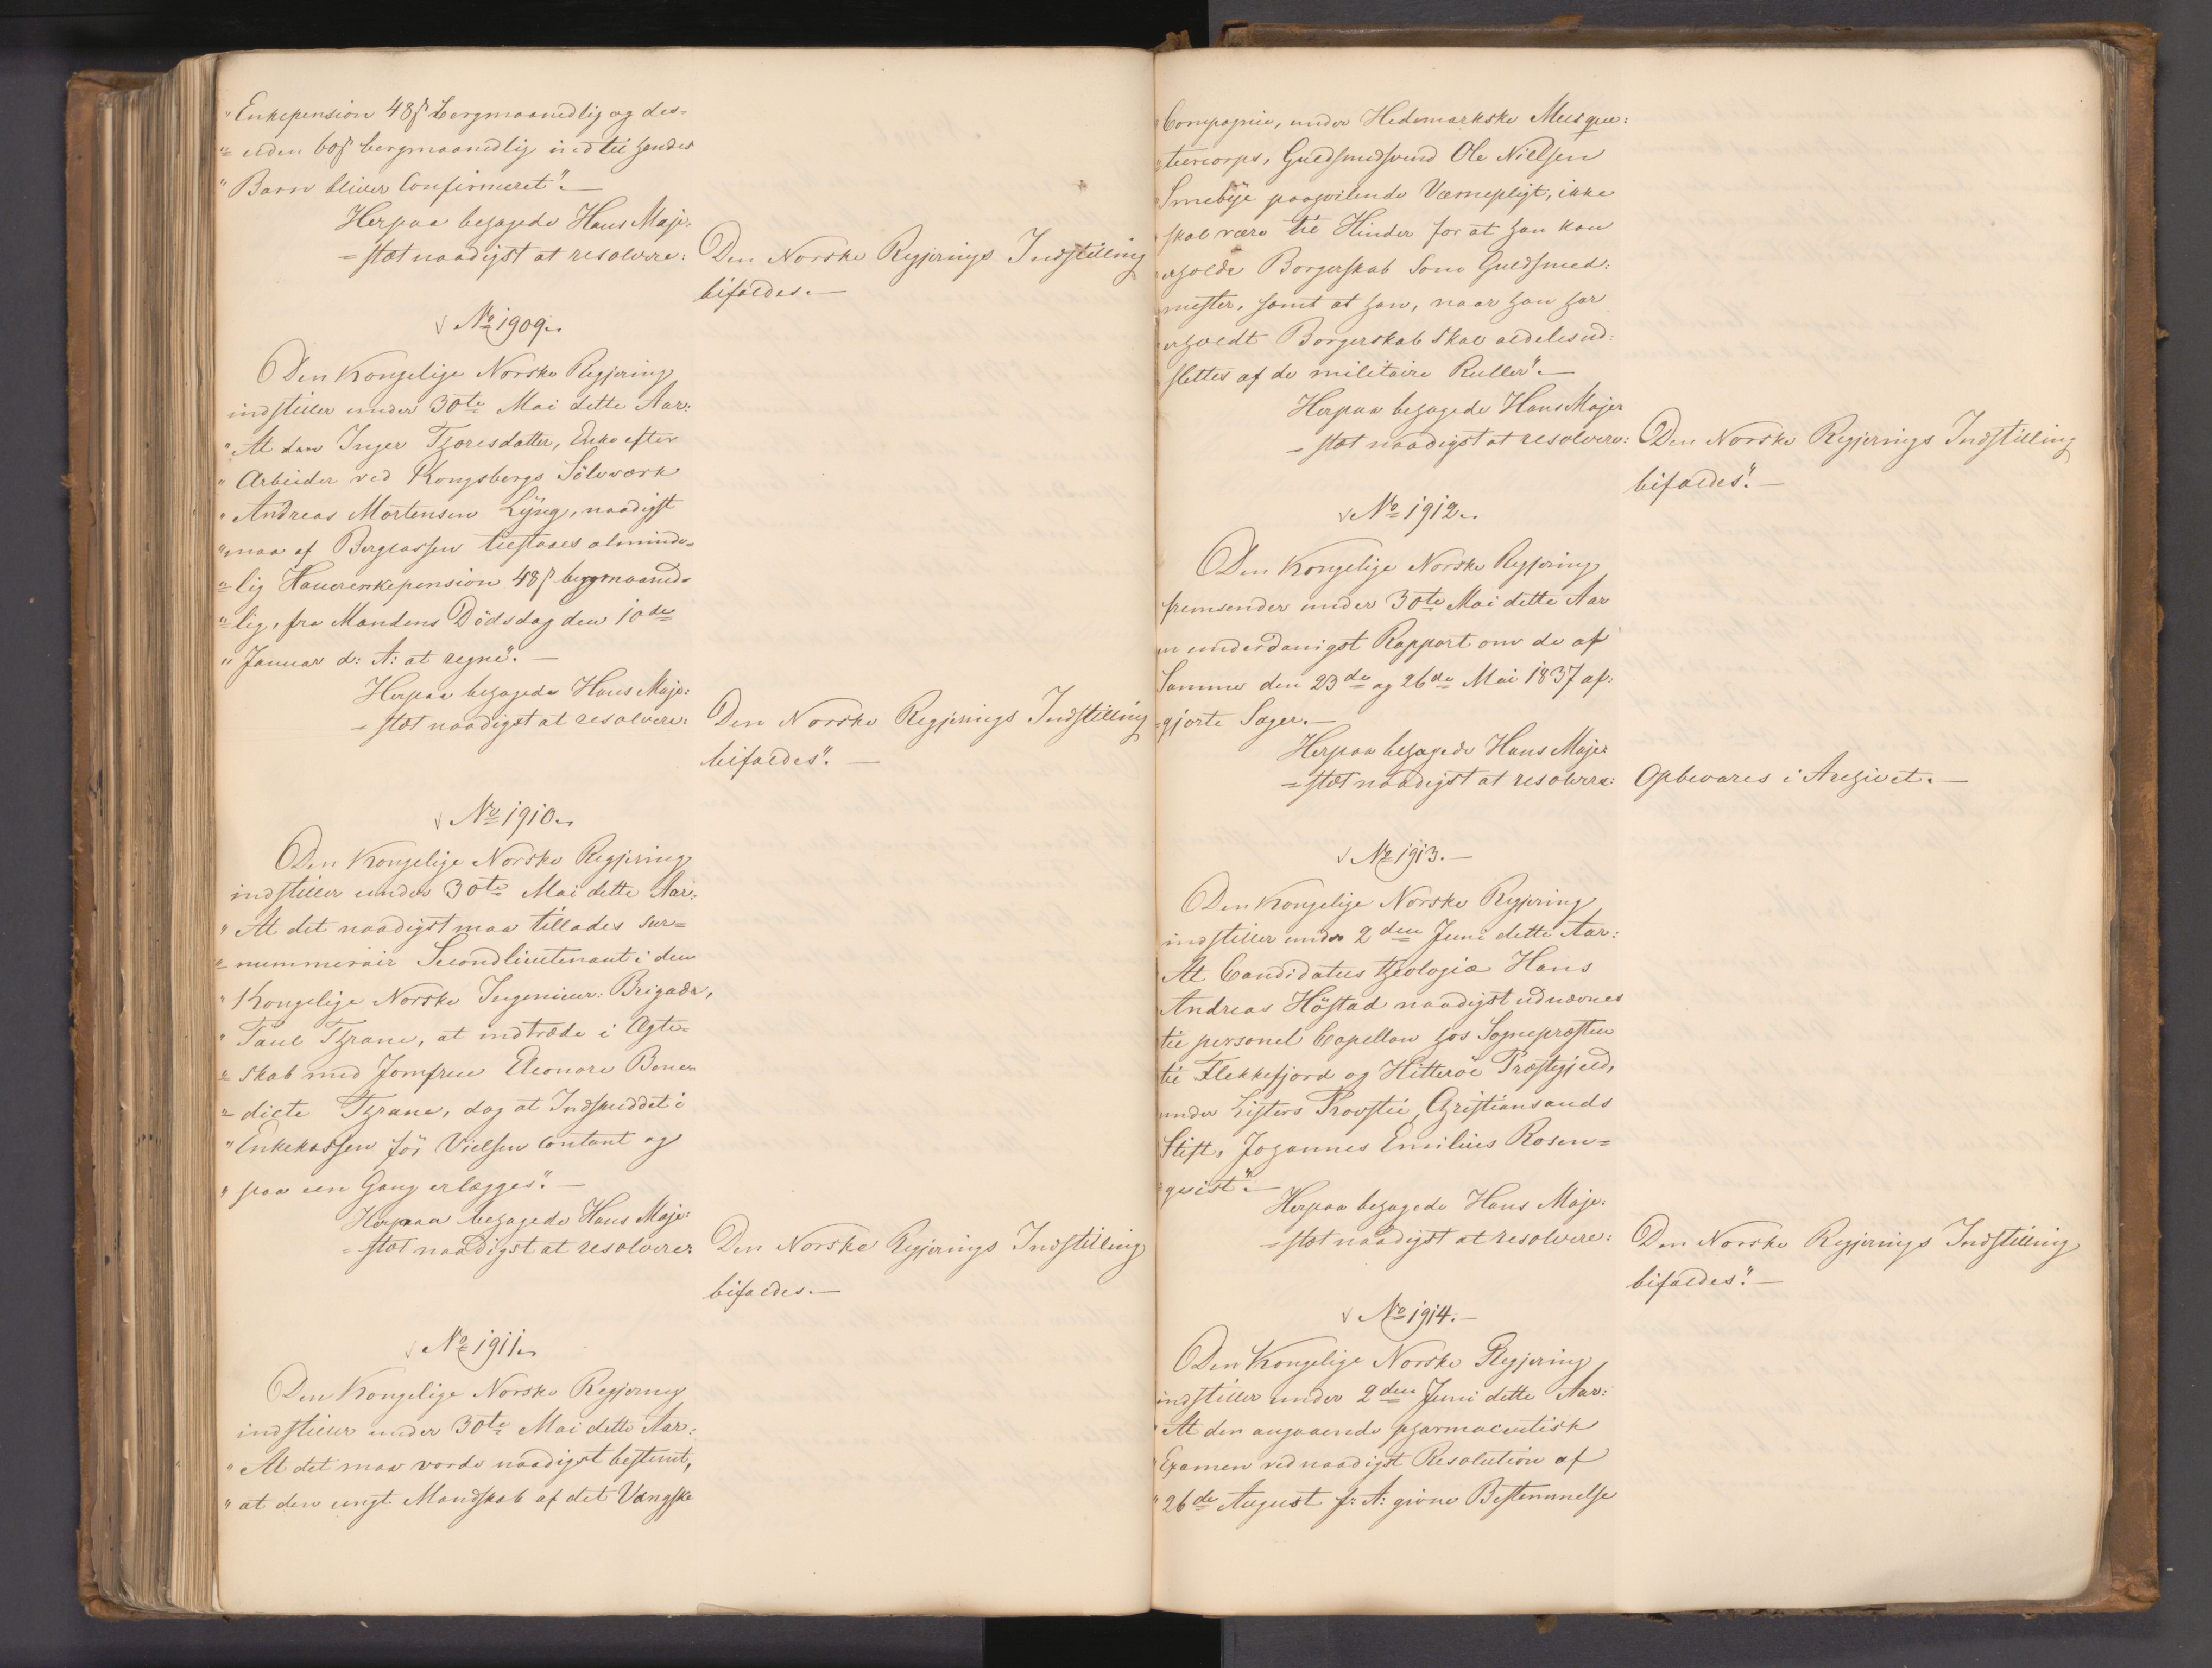 "Enkepension 48ß bergmaanedlig og des-
"=uden 60ß bergmaanedlig indtil hendes
"Barn bliver Confirmeret".—
Herpaa behagede Hans Maje-
=stæt naadigst at resolvere:
Den Norske Regjerings Indstilling
bifaldes.—
√ No 1909.
Den Kongelige Norske Regjering
indstiller under 30te Mai dette Aar:
"At den Inger Thoresdatter, Enke efter
"Arbeider ved Kongsbergs Sölvværk
"Andreas Mortensen Lÿng, naadigst
"maa af Bergcassen tilstaaes alminde-
"=lig Hauerenkepension 48ß bergmaaned-
"=lig, fra Mandens Dödsdag den 10de
"Januar d: A: at regne".—
Herpaa behagede Hans Maje-
=stæt naadigst at resolvere:
Den Norske Regjerings Indstilling
bifaldes".—
√ No 1910.
Den Kongelige Norske Regjering
indstiller under 30te Mai dette Aar:
"At det naadigst maa tillades sur=
"=nummerair Secondlieutenant i den
"Kongelige Norske Ingenieur-Brigade,
"Paul Thrane, at indtræde i Ægte-
"=skab med Jomfrue Eleonore Bene-
"=dicte Thrane, dog at Indskuddet i
"Enkekassen för Vielsen contant og
"paa een Gang erlægges".—
Herpaa behagede Hans Maje-
=stæt naadigst at resolvere:
Den Norske Regjerings Indstilling
bifaldes.—
√ No 1911.
Den Kongelige Norske Regjering
indstiller under 30te Mai dette Aar:
"At det maa vorde naadigst bestemt,
"at den ungt Mandskab af det Vangske
Compagnie, under Hedemarkske Musque-
"teercorps, Guldsmedsvend Ole Nielsen
"Smebÿe paahvilende Værnepligt, ikke
"skal være til Hinder for at han kan
"erholde Borgerskab som Guldsmed-
"mester, samt at han, naar han har
"erholdt Borgerskab skal aldeles ud-
slettes af de militaire Ruller".—
Herpaa behagede Hans Maje-
=stæt naadigst at resolvere:
Den Norske Regjerings Indstilling
bifaldes".—
√ No 1912.
Den Kongelige Norske Regjering
fremsender under 30te Mai dette Aar
en underdanigst Rapport om de af
Samme den 23de og 26de Mai 1837 af-
=gjorte Sager.—
Herpaa behagede Hans Maje-
=stæt naadigst at resolvere:
Opbevares i Archivet.—
√ No 1913.—
Den Kongelige Norske Regjering
indstiller under 2den Juni dette Aar:
At Candidatus theologiæ Hans
Andreas Höstad naadigst udnævnes
til personel Capellan hos Sognepræsten
til Flekkefjord og Hitteröe Præstegjeld,
under Listers Provstie, Christiansands
Stift, Johannes Emilius Rosen=
"qvist".—
Herpaa behagede Hans Maje-
=stæt naadigst at resolvere:
Den Norske Regjerings Indstilling
bifaldes".—
√ No 1914.—
Den Kongelige Norske Regjering
indstiller under 2den Juni dette Aar:
"At den angaaende pharmaceutisk
"Examen ved naadigst Resolution af
"26de August f: A: givne Bestemmelse